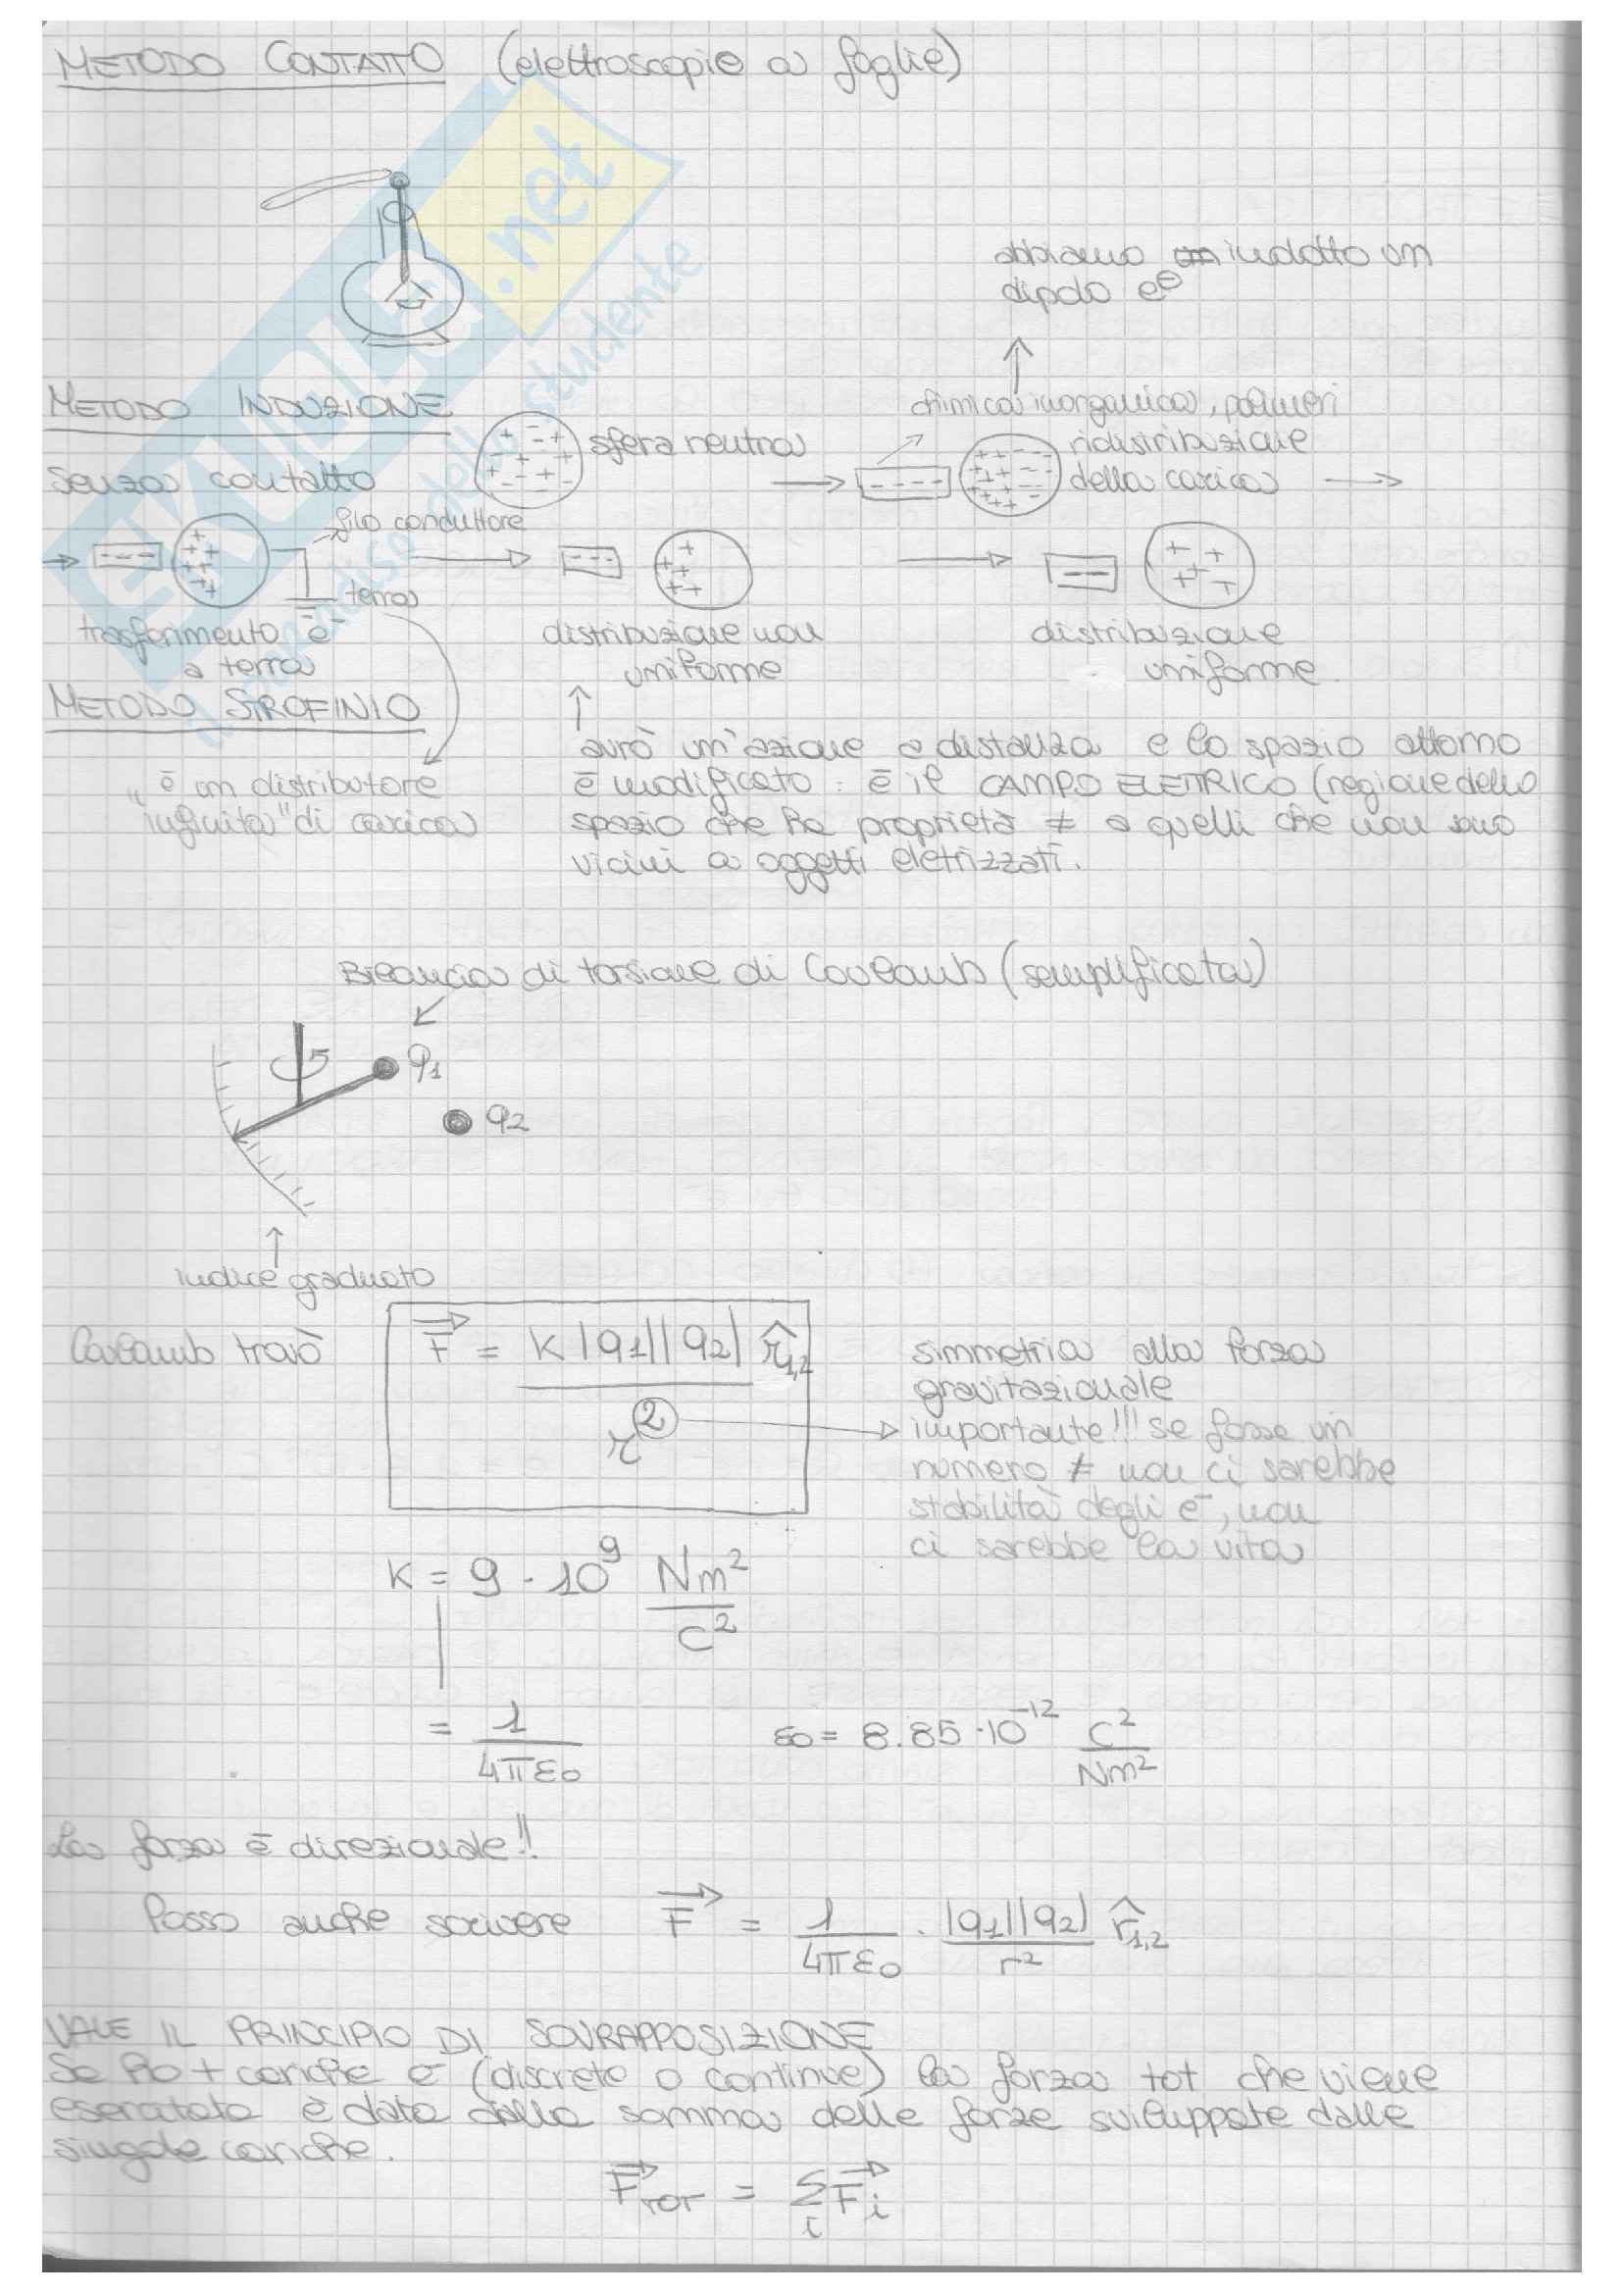 METODO CONTATTO (elettroscopio a foglie)
abbiamo indotto un
dipolo e⊖
METODO INDUZIONE
chimica inorganica, polimeri
sfera neutra
ridistribuzione
senza contatto
della carica
filo conduttore
terra
trasferimento e⁻
a terra
distribuzione non
uniforme
distribuzione
uniforme
METODO STROFINIO
avrò un'azione a distanza e lo spazio attorno
è modificato: è il CAMPO ELETTRICO (regione dello
spazio che ha proprietà ≠ a quelli che non sono
vicini a oggetti eletrizzati.
"è un distributore
infinita" di carica
Bilancia di torsione di Coulomb (semplificata)
q1
q2
indice graduato
Coulomb trovò
F = K |q1||q2| r̂1,2
r²
simmetria alla forza
gravitazionale
importante!!! se fosse un
numero ≠ non ci sarebbe
stabilità degli e⁻, non
ci sarebbe la vita
K = 9 · 10⁹ Nm²
C²
= 1
4πε0
ε0 = 8.85 · 10⁻¹² C²
Nm²
La forza è direzionale!!
Posso anche scrivere F = 1 · |q1||q2| r̂1,2
4πε0 r²
VALE IL PRINCIPIO DI SOVRAPPOSIZIONE
Se ho + cariche e⁻ (discrete o continue) la forza tot che viene
esercitata è data dalla somma delle forze sviluppate dalle
singole cariche.
FTOT = Σ Fi
i
SKUOLA.net